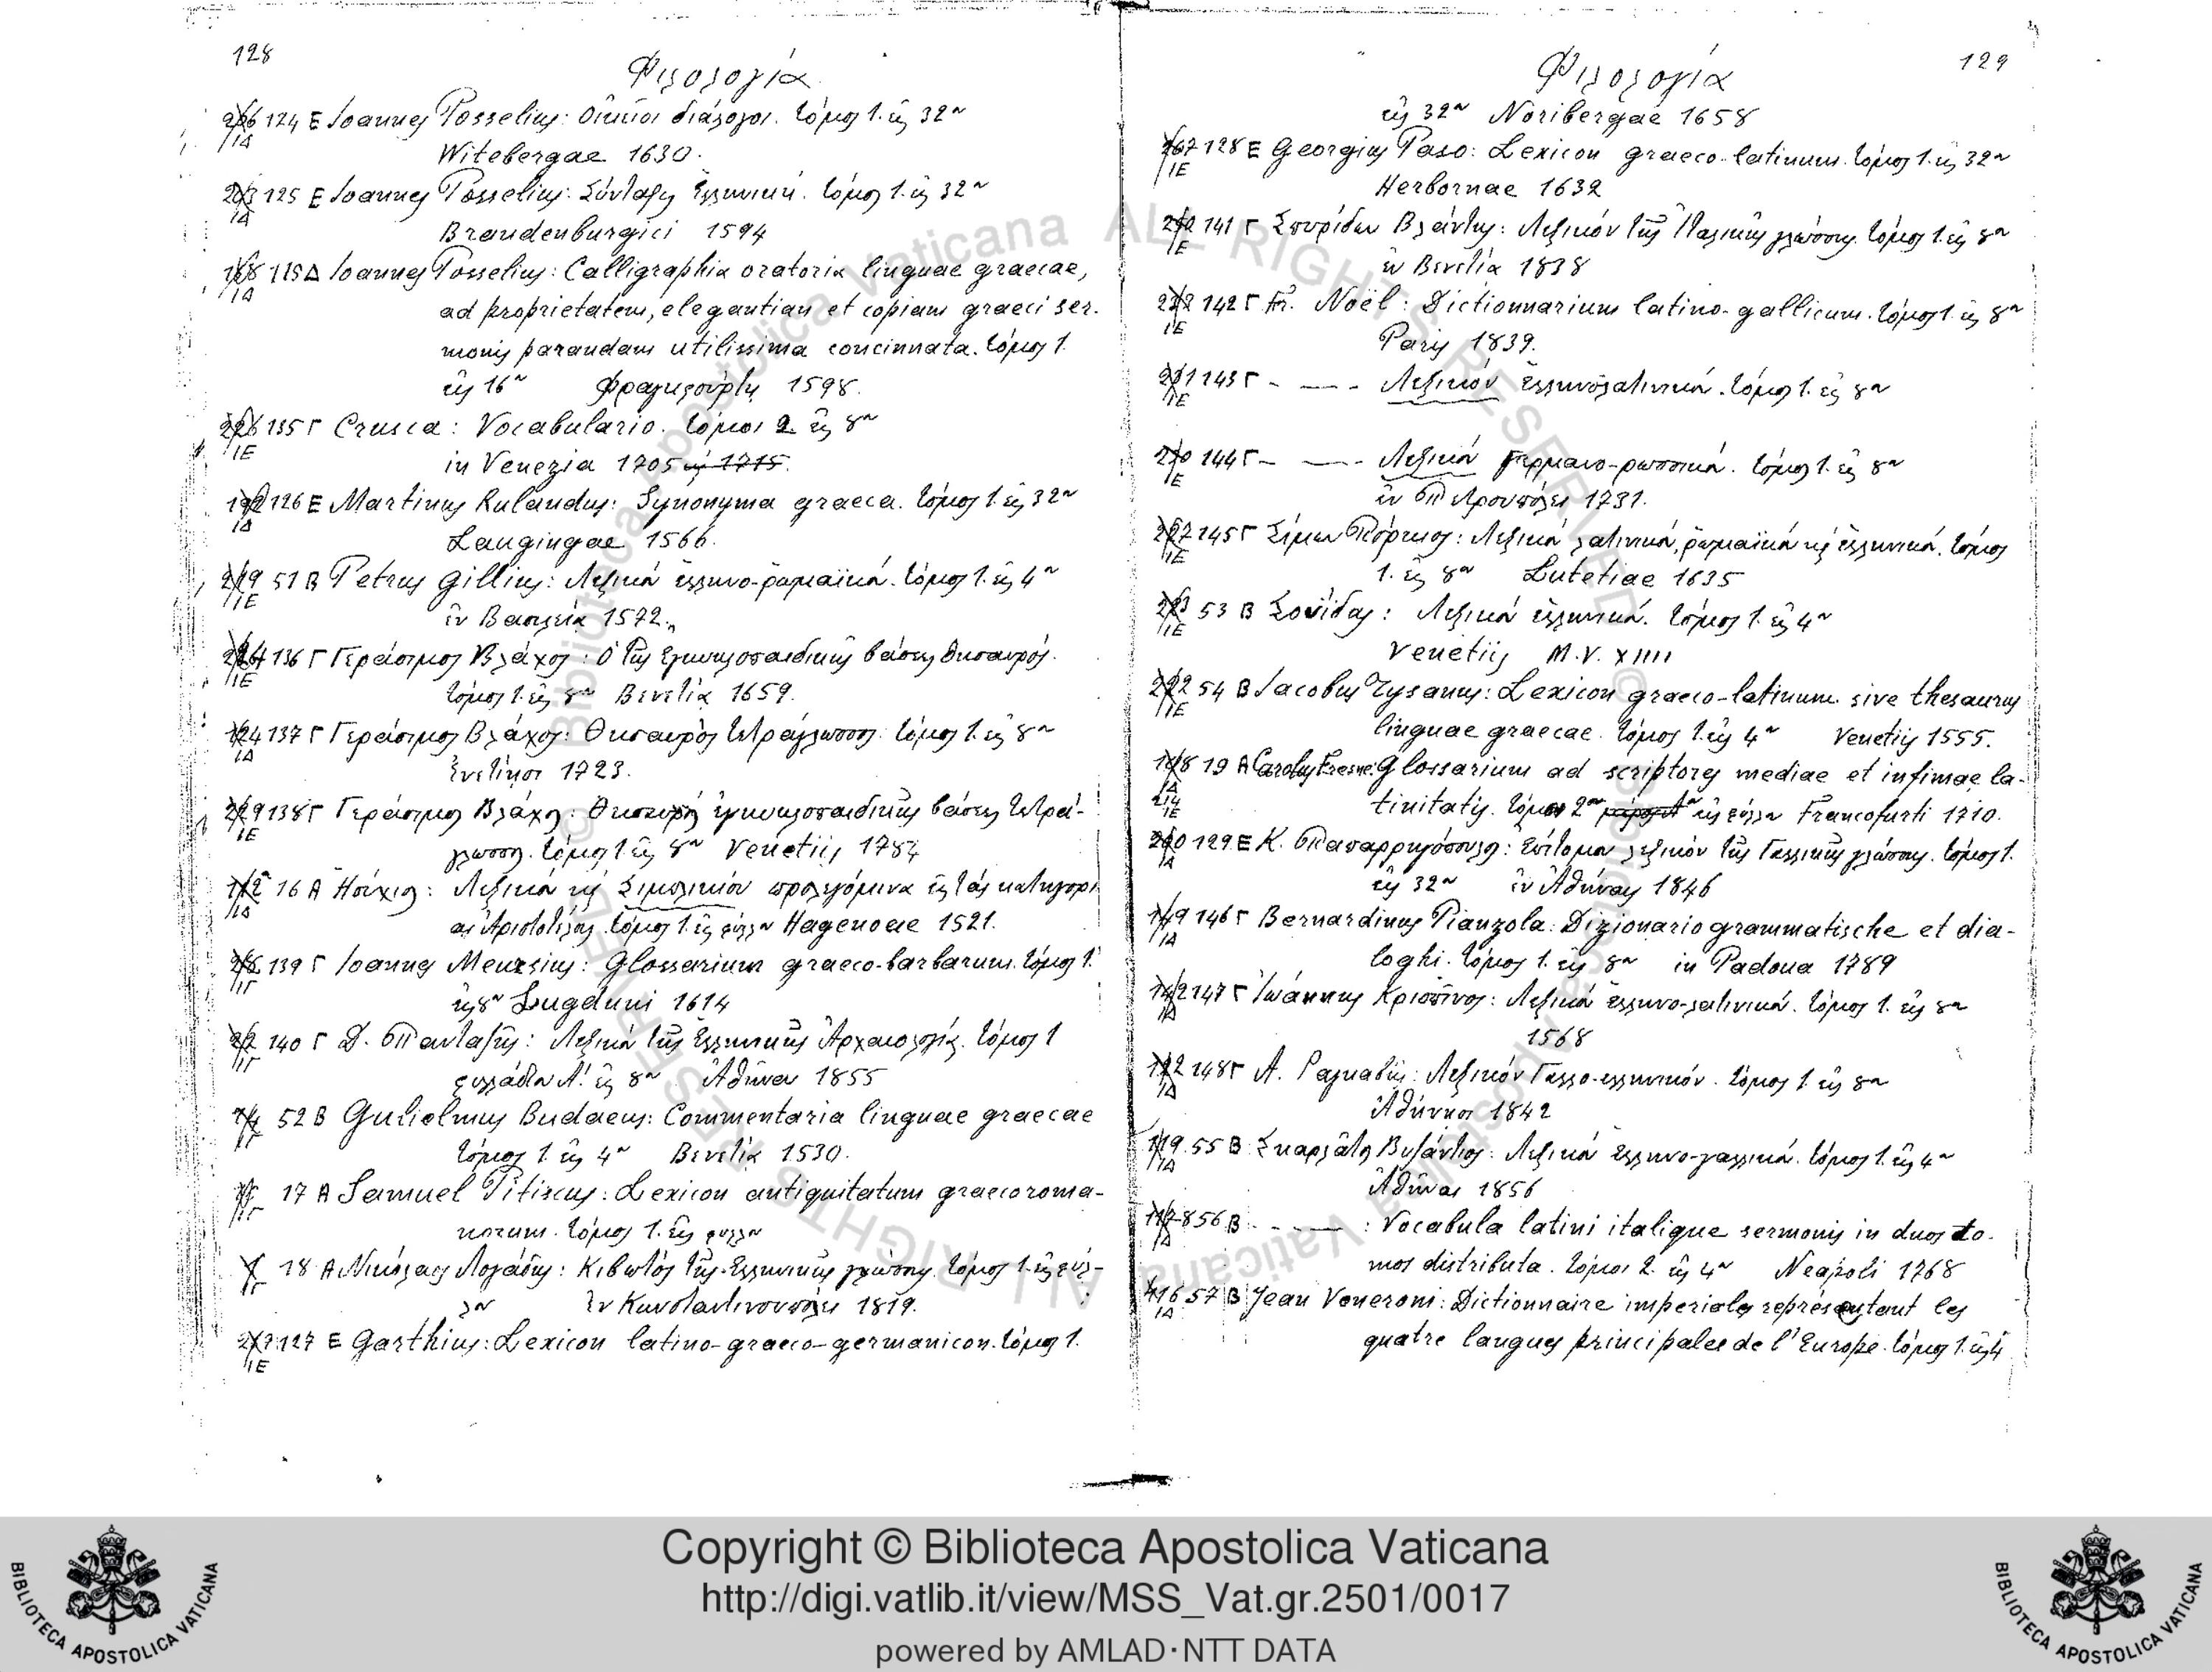 128
Φιλολογία
124 Ε Ioannes Posselius: Οἰκεῖοι διάλογοι. τόμος 1. εἰς 32ον
ΙΔ
Witebergae 1630.
125 Ε Ioannes Posselius: Σύνταξις ἑλληνική. τόμος 1. εἰς 32ον
ΙΔ
Brandenburgici 1594
115 Δ Ioannes Posselius: Calligraphia oratoria linguae graecae,
ΙΔ
ad proprietatem, elegantiam et copiam graeci ser-
monis parandam utilissima concinnata. τόμος 1.
εἰς 16ον Φραγκφούρτῃ 1598.
135 Γ Crusca: Vocabulario. τόμοι 2 εἰς 8ον
ΙΕ
in Venezia 1705 καὶ 1715.
126 Ε Martinus Rulandus: Synonyma graeca. τόμος 1. εἰς 32ον
ΙΔ
Laugingae 1566.
51 Β Petrus Gillius: Λεξικὸν ἑλληνο-ῥωμαϊκόν. τόμος 1. εἰς 4ον
ΙΕ
ἐν Βασιλείᾳ 1572.
136 Γ Γεράσιμος Βλάχος: Ὁ τῆς ἐγκυκλοπαιδικῆς βάσεως θησαυρός.
ΙΕ
τόμος 1. εἰς 8ον Βενετίᾳ 1659.
137 Γ Γεράσιμος Βλάχος: Θησαυρὸς τετράγλωσσος. τόμος 1. εἰς 8ον
ΙΔ
Ἐνετίησι 1723.
138 Γ Γεράσιμος Βλάχος: Θησαυρὸς ἐγκυκλοπαιδικῆς βάσεως τετρά-
ΙΕ
γλωσσος. τόμος 1. εἰς 8ον Venetiis 1784
16 Α Ἡσύχιος: Λεξικὸν καὶ Σιμπλικίου προλεγόμενα εἰς τὰς κατηγορί
ΙΔ
ας Ἀριστοτέλους. τόμος 1. εἰς φύλλον Hagenoae 1521.
139 Γ Ioannes Meursius: Glossarium graeco-barbarum. τόμος 1.
ΙΓ
εἰς 8ον Lugduni 1614
140 Γ Δ. Πανταζῆς: Λεξικὸν τῆς Ἑλληνικῆς Ἀρχαιολογίας. τόμος 1
ΙΓ
φυλλάδιον Α! εἰς 8ον Ἀθῆναι 1855
52 Β Gulielmus Budaeus: Commentaria linguae graecae
ΙΓ
τόμος 1. εἰς 4ον Βενετίᾳ 1530.
17 Α Samuel Pitiscus: Lexicon antiquitatum graecoroma-
ΙΓ
norum. τόμος 1. εἰς φύλλον
18 Α Νικόλαος Λογάδης: Κιβωτὸς τῆς Ἑλληνικῆς γλώσσης. τόμος 1. εἰς φύλ-
ΙΓ
λον ἐν Κωνσταντινουπόλει 1819.
127 Ε Garthius: Lexicon latino-graeco-germanicon. τόμος 1.
ΙΕ
Φιλολογία
129
εἰς 32ον Noribergae 1658
128 Ε Georgius Paso: Lexicon graeco-latinum. τόμος 1. εἰς 32ον
ΙΕ
Herbornae 1632
141 Γ Σπυρίδων Βλάντης: Λεξικὸν τῆς Ἰταλικῆς γλώσσης. τόμος 1. εἰς 8ον
ΙΕ
ἐν Βενετίᾳ 1838
142 Γ Fr. Noël: Dictionnarium latino-gallicum. τόμος 1. εἰς 8ον
ΙΕ
Paris 1839.
143 Γ - —— - Λεξικὸν ἑλληνολατινικόν. τόμος 1. εἰς 8ον
ΙΕ
144 Γ - —— - Λεξικὸν Γερμανο-ρωσσικόν. τόμος 1. εἰς 8ον
ΙΕ
ἐν Πετρουπόλει 1731.
145 Γ Σίμων Πόρκιος: Λεξικὸν λατινικόν, ῥωμαϊκὸν καὶ ἑλληνικόν. τόμος
ΙΕ
1. εἰς 8ον Lutetiae 1635
53 Β Σουΐδας: Λεξικὸν ἑλληνικόν. τόμος 1. εἰς 4ον
ΙΕ
Venetiis M.V.XIIII
54 Β Iacobus Tysanus: Lexicon graeco-latinum sive thesaurus
ΙΕ
linguae graecae. τόμος 1. εἰς 4ον Venetiis 1555.
19 Α Carolus Fresne: Glossarium ad scriptores mediae et infimae la-
ΙΔ
214
ΙΕ
tinitatis. τόμος 2ος εἰς φύλλον Francofurti 1710.
129 Ε Κ. Παπαρρηγόπουλος: Ἐπίτομον λεξικὸν τῆς Γαλλικῆς γλώσσης. τόμος 1.
ΙΔ
εἰς 32ον ἐν Ἀθήναις 1846
146 Γ Bernardinus Pianzola: Dizionario grammatische et dia-
ΙΔ
loghi. τόμος 1. εἰς 8ον in Padoua 1789
147 Γ Ἰωάννης Κρισπῖνος: Λεξικὸν ἑλληνο-λατινικόν. τόμος 1. εἰς 8ον
ΙΔ
1568
148 Γ Α. Ραγκαβῆς: Λεξικὸν Γαλλο-ελληνικόν. τόμος 1 εἰς 8ον
ΙΔ
Ἀθήνησι 1842
55 Β Σκαρλᾶτος Βυζάντιος: Λεξικὸν ἑλληνο-γαλλικόν. τόμος 1. εἰς 4ον
ΙΔ
Ἀθῆναι 1856
56 Β - - —— : Vocabula latini italique sermonis in duos to-
ΙΔ
mos distributa. τόμοι 2. εἰς 4ον Neapoli 1768
57 Β Jean Veneroni: Dictionnaire imperiale représentant les
ΙΔ
quatre langues principales de l'Europe. τόμος 1. εἰς 4
© Biblioteca Apostolica Vaticana ALL RIGHTS RESERVED
© Biblioteca Apostolica Vaticana ALL RIGHTS RESERVED
Copyright © Biblioteca Apostolica Vaticana
http://digi.vatlib.it/view/MSS_Vat.gr.2501/0017
powered by AMLAD·NTT DATA
BIBLIOTECA APOSTOLICA VATICANA
BIBLIOTECA APOSTOLICA VATICANA